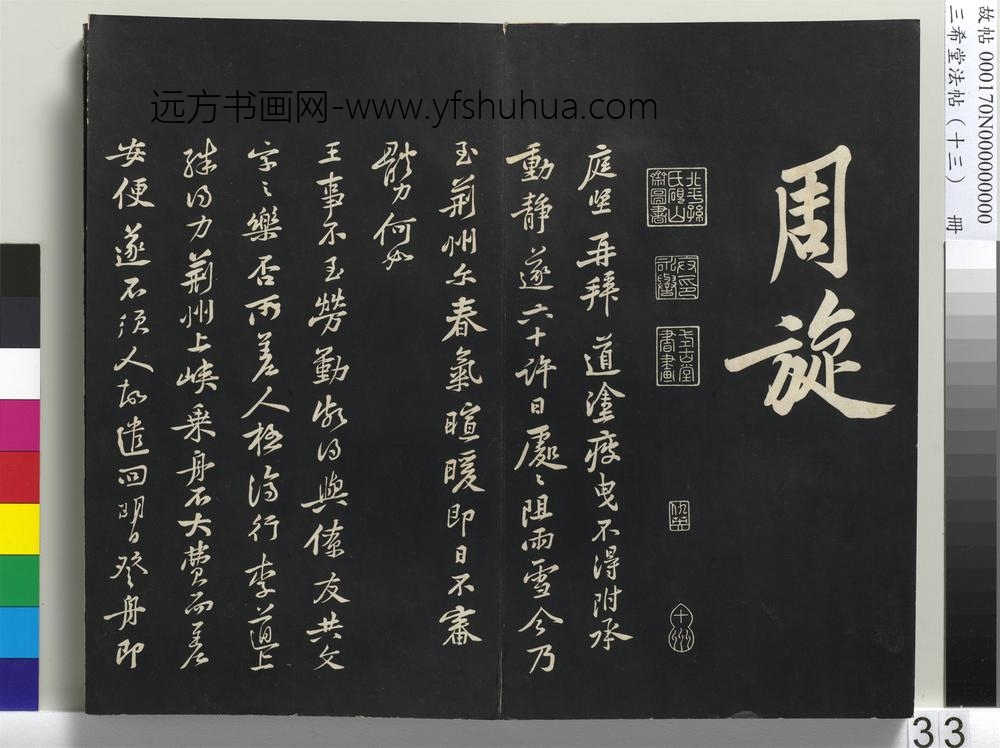 周旋
北平孫氏硯山齋圖書
式古堂書畫
仇英
十洲
庭堅再拜 道塗疲曳不得附承
動靜遂六十許日處〻阻雨雪今乃
至荊州尓春氣暄暖即日不審
體力何如
王事不至勞勤頗得與僚友共文
字之樂否所差人極濟行李道上
殊得力荊州上峽乘舟不大費而差
安便遂不須人故遣回明日登舟即
远方书画网-www.yfshuhua.com
故帖 000170N000000000
三希堂法帖（十三） 册
33